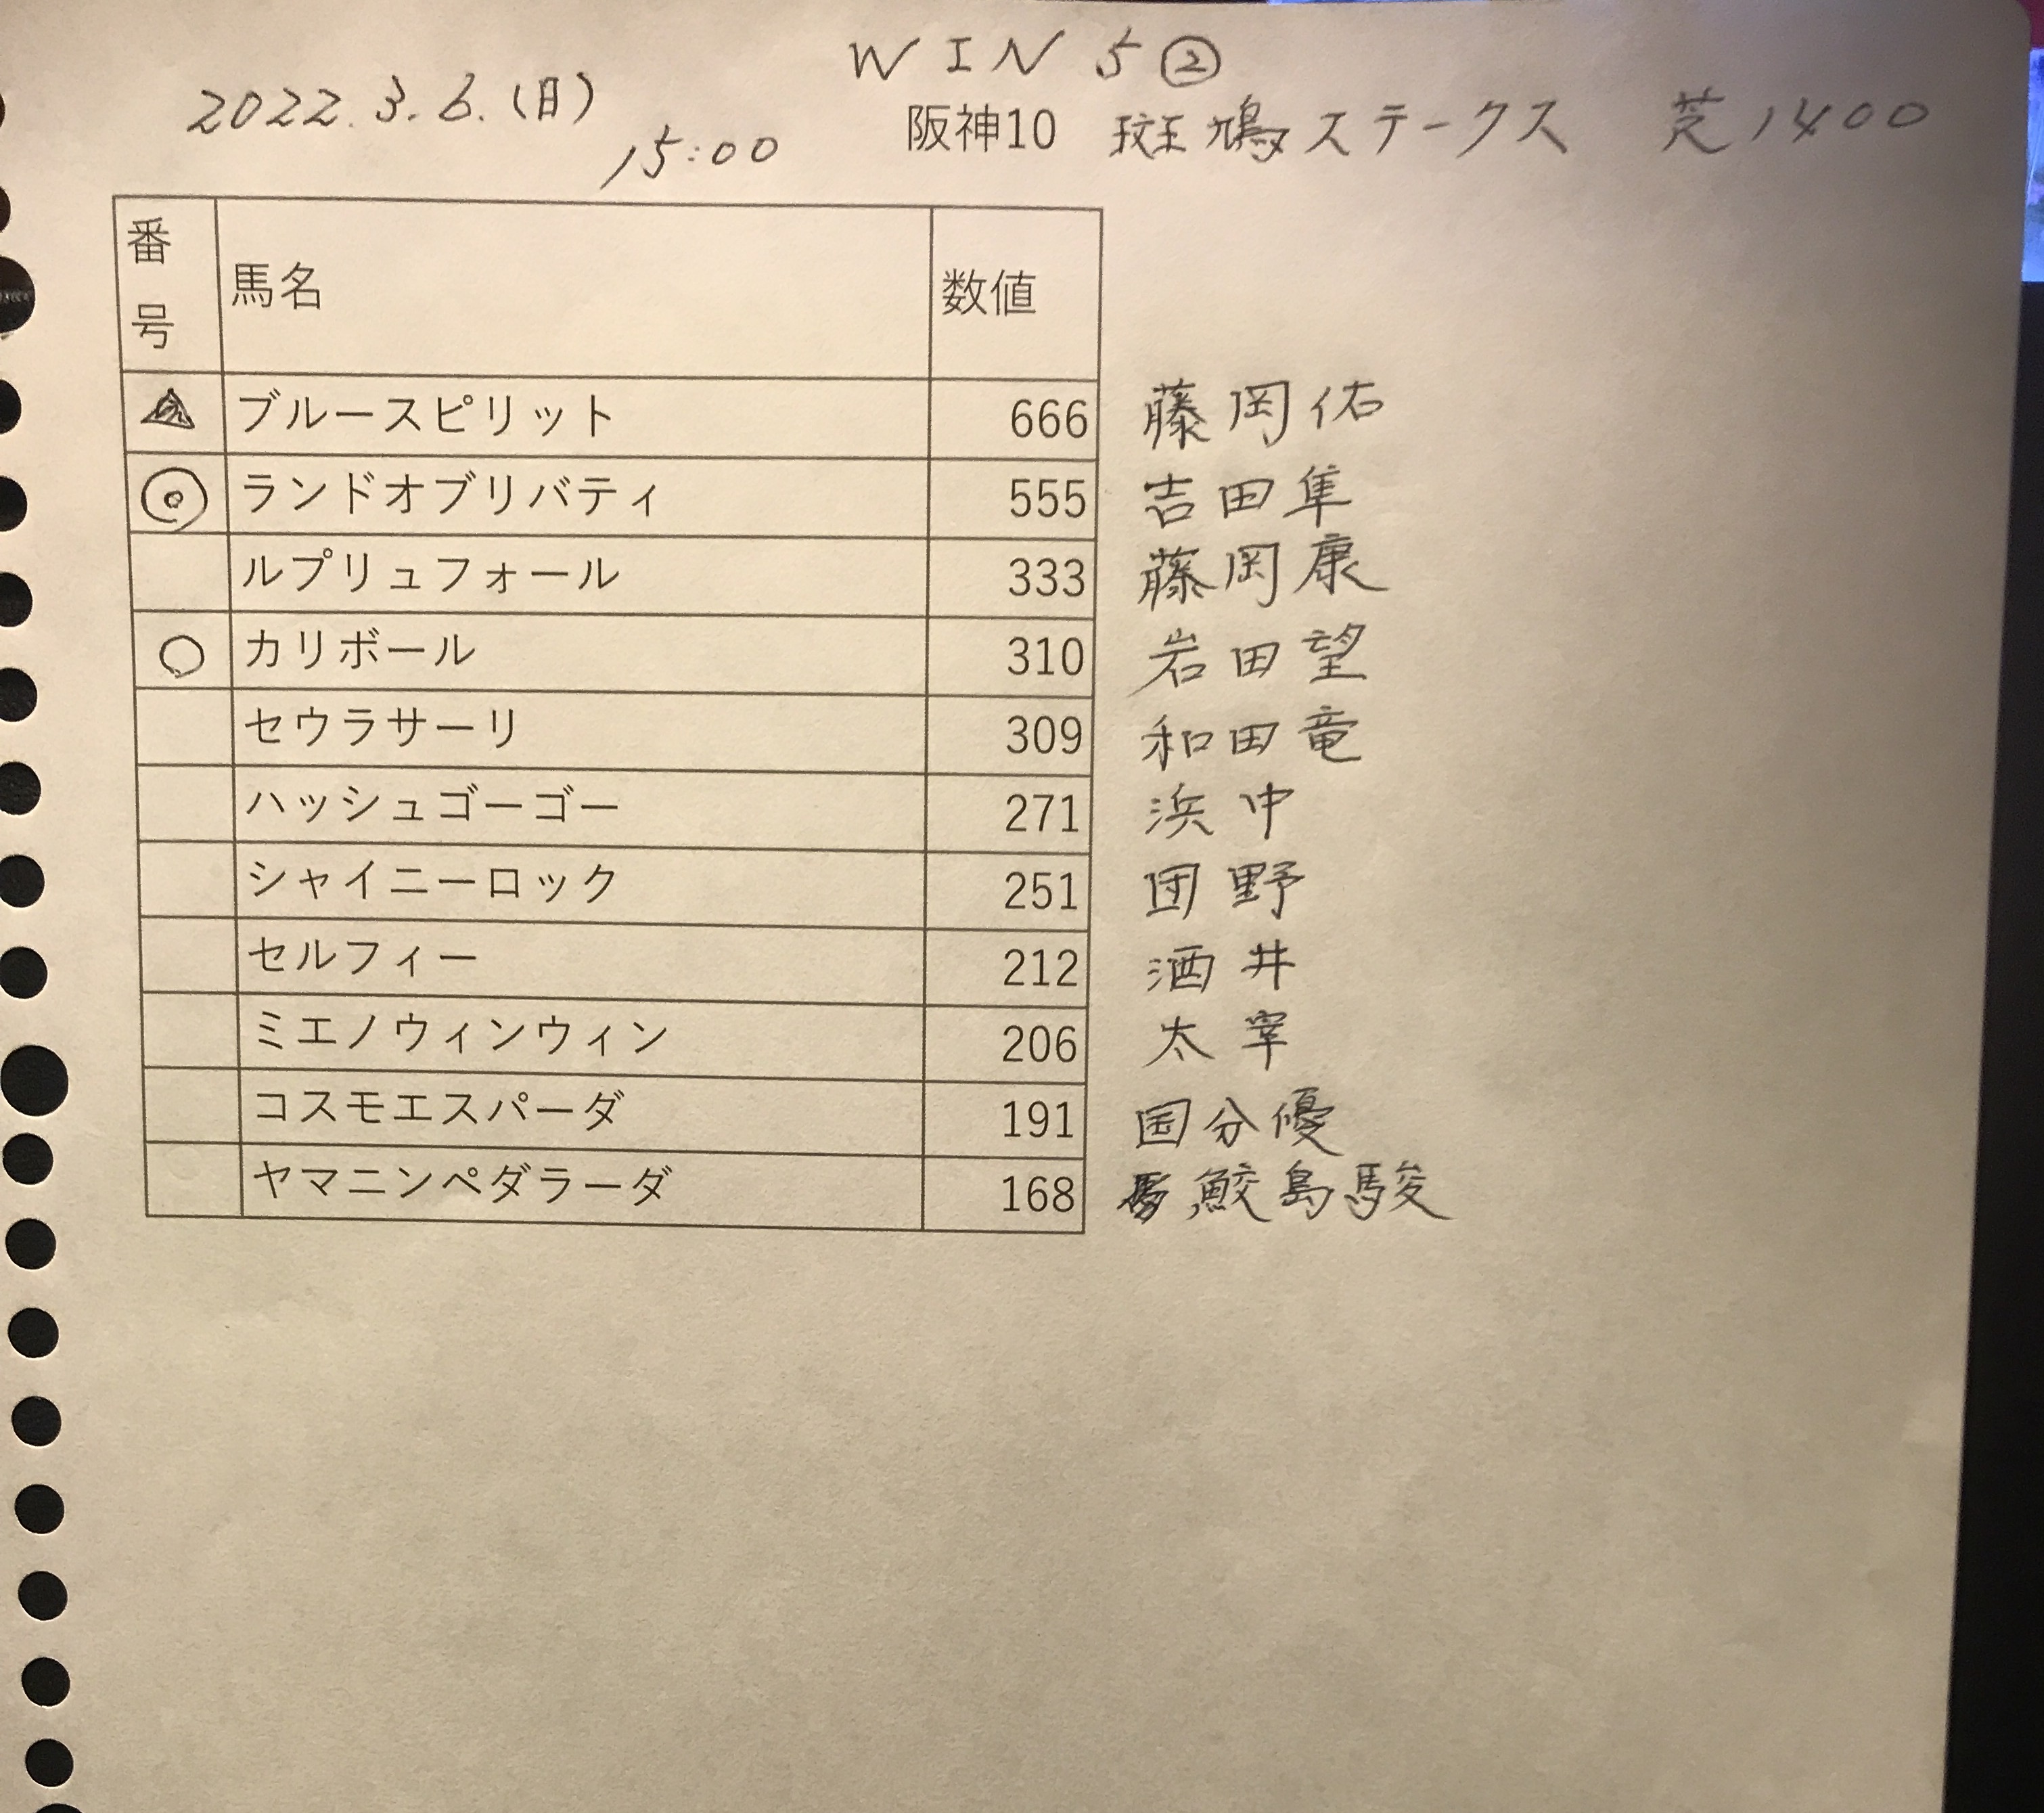 WIN5②
2022.3.6.(日)
15:00
阪神10 斑鳩ステークス 芝1400
番号 馬名 数値
▲ ブルースピリット 666 藤岡佑
◎ ランドオブリバティ 555 吉田隼
ルプリュフォール 333 藤岡康
○ カリボール 310 岩田望
セウラサーリ 309 和田竜
ハッシュゴーゴー 271 浜中
シャイニーロック 251 団野
セルフィー 212 酒井
ミエノウィンウィン 206 太宰
コスモエスパーダ 191 国分優
ヤマニンペダラーダ 168 鮫島駿